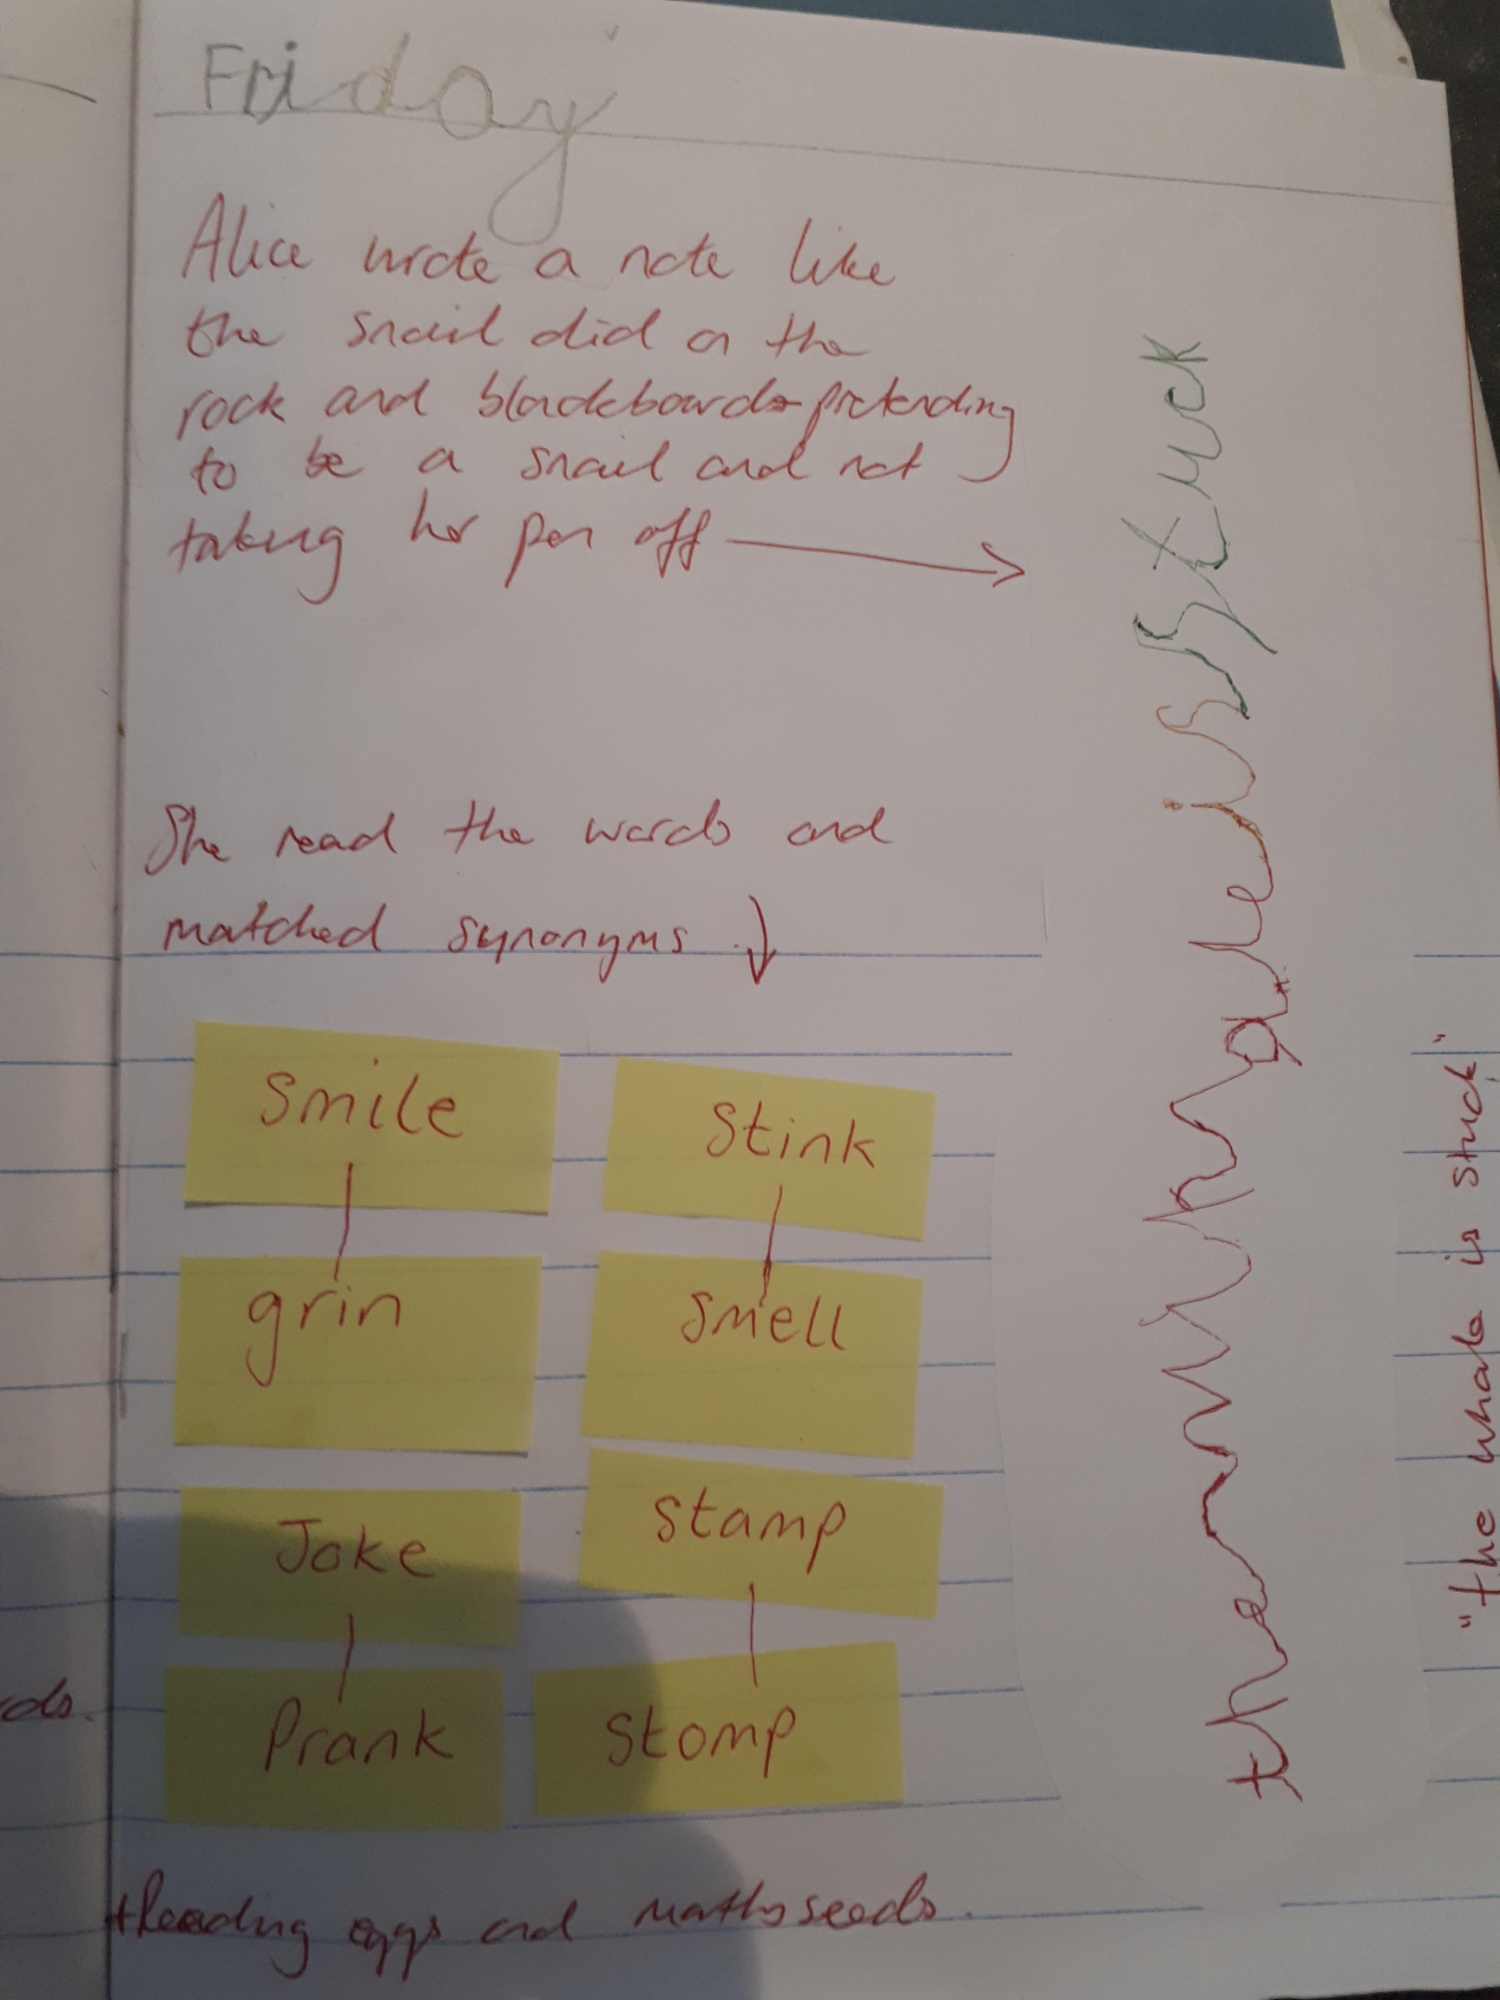 Friday
Alice wrote a note like
the snail did on the
rock and blackboard - pretending
to be a snail and not
taking her pen off
She read the words and
matched synonyms
Smile
grin
Stink
Smell
Joke
Prank
Stamp
Stomp
+Reading eggs and mathsseeds.
the whale is stuck
"the whale is stuck"
rds.